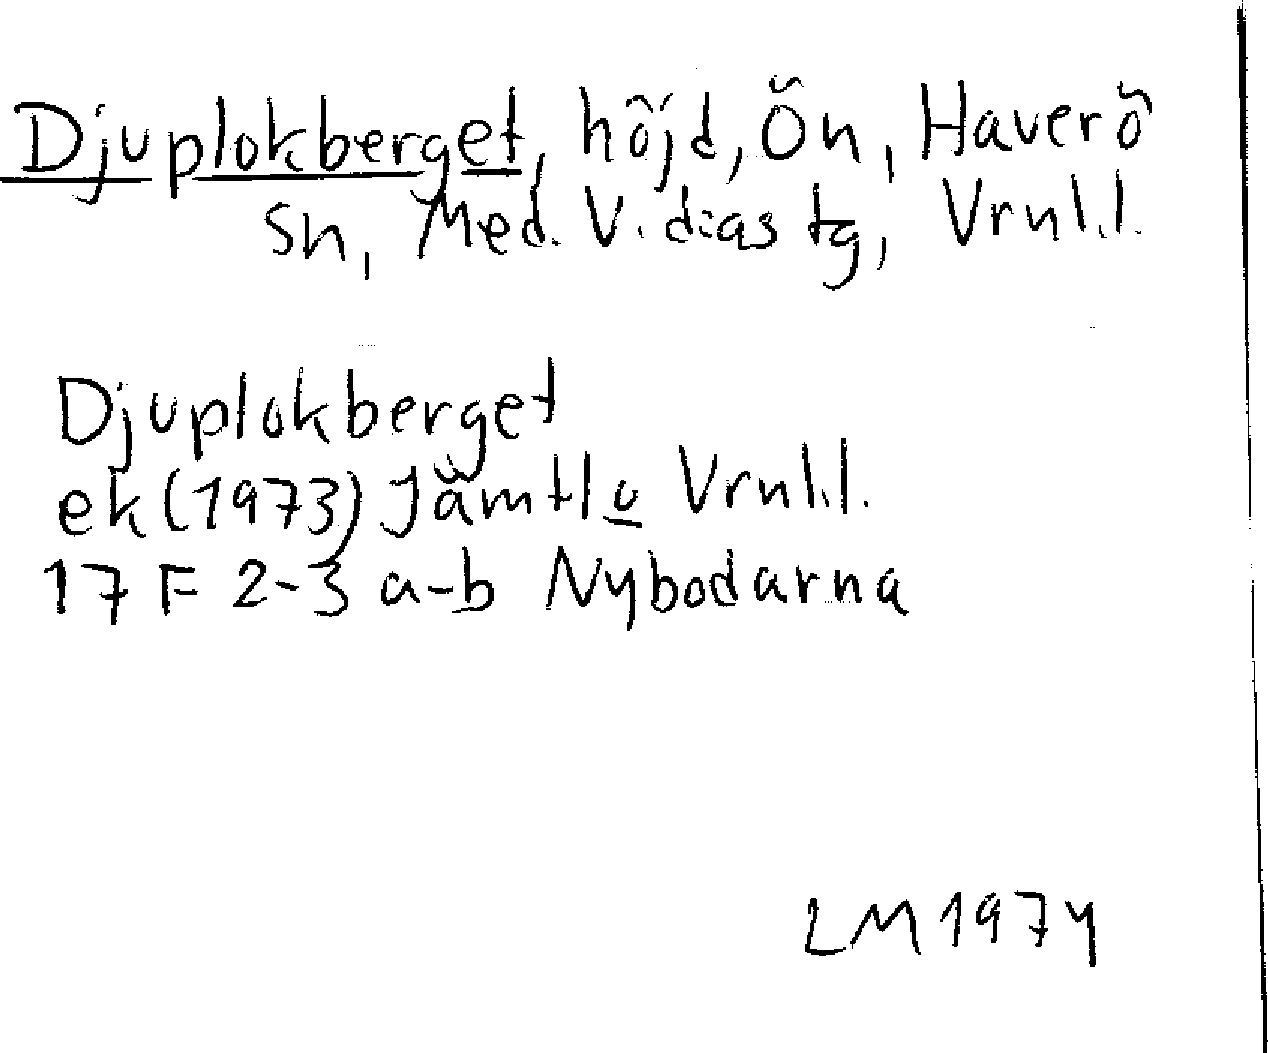 Djuplokberget, höjd, Ön, Haverö
sn, Med. V. d:as tg, Vrnl.l.
Djuplokberget
ek (1973) Jämtl o Vrnl.l.
17 F 2-3 a-b Nybodarna
LM 1974